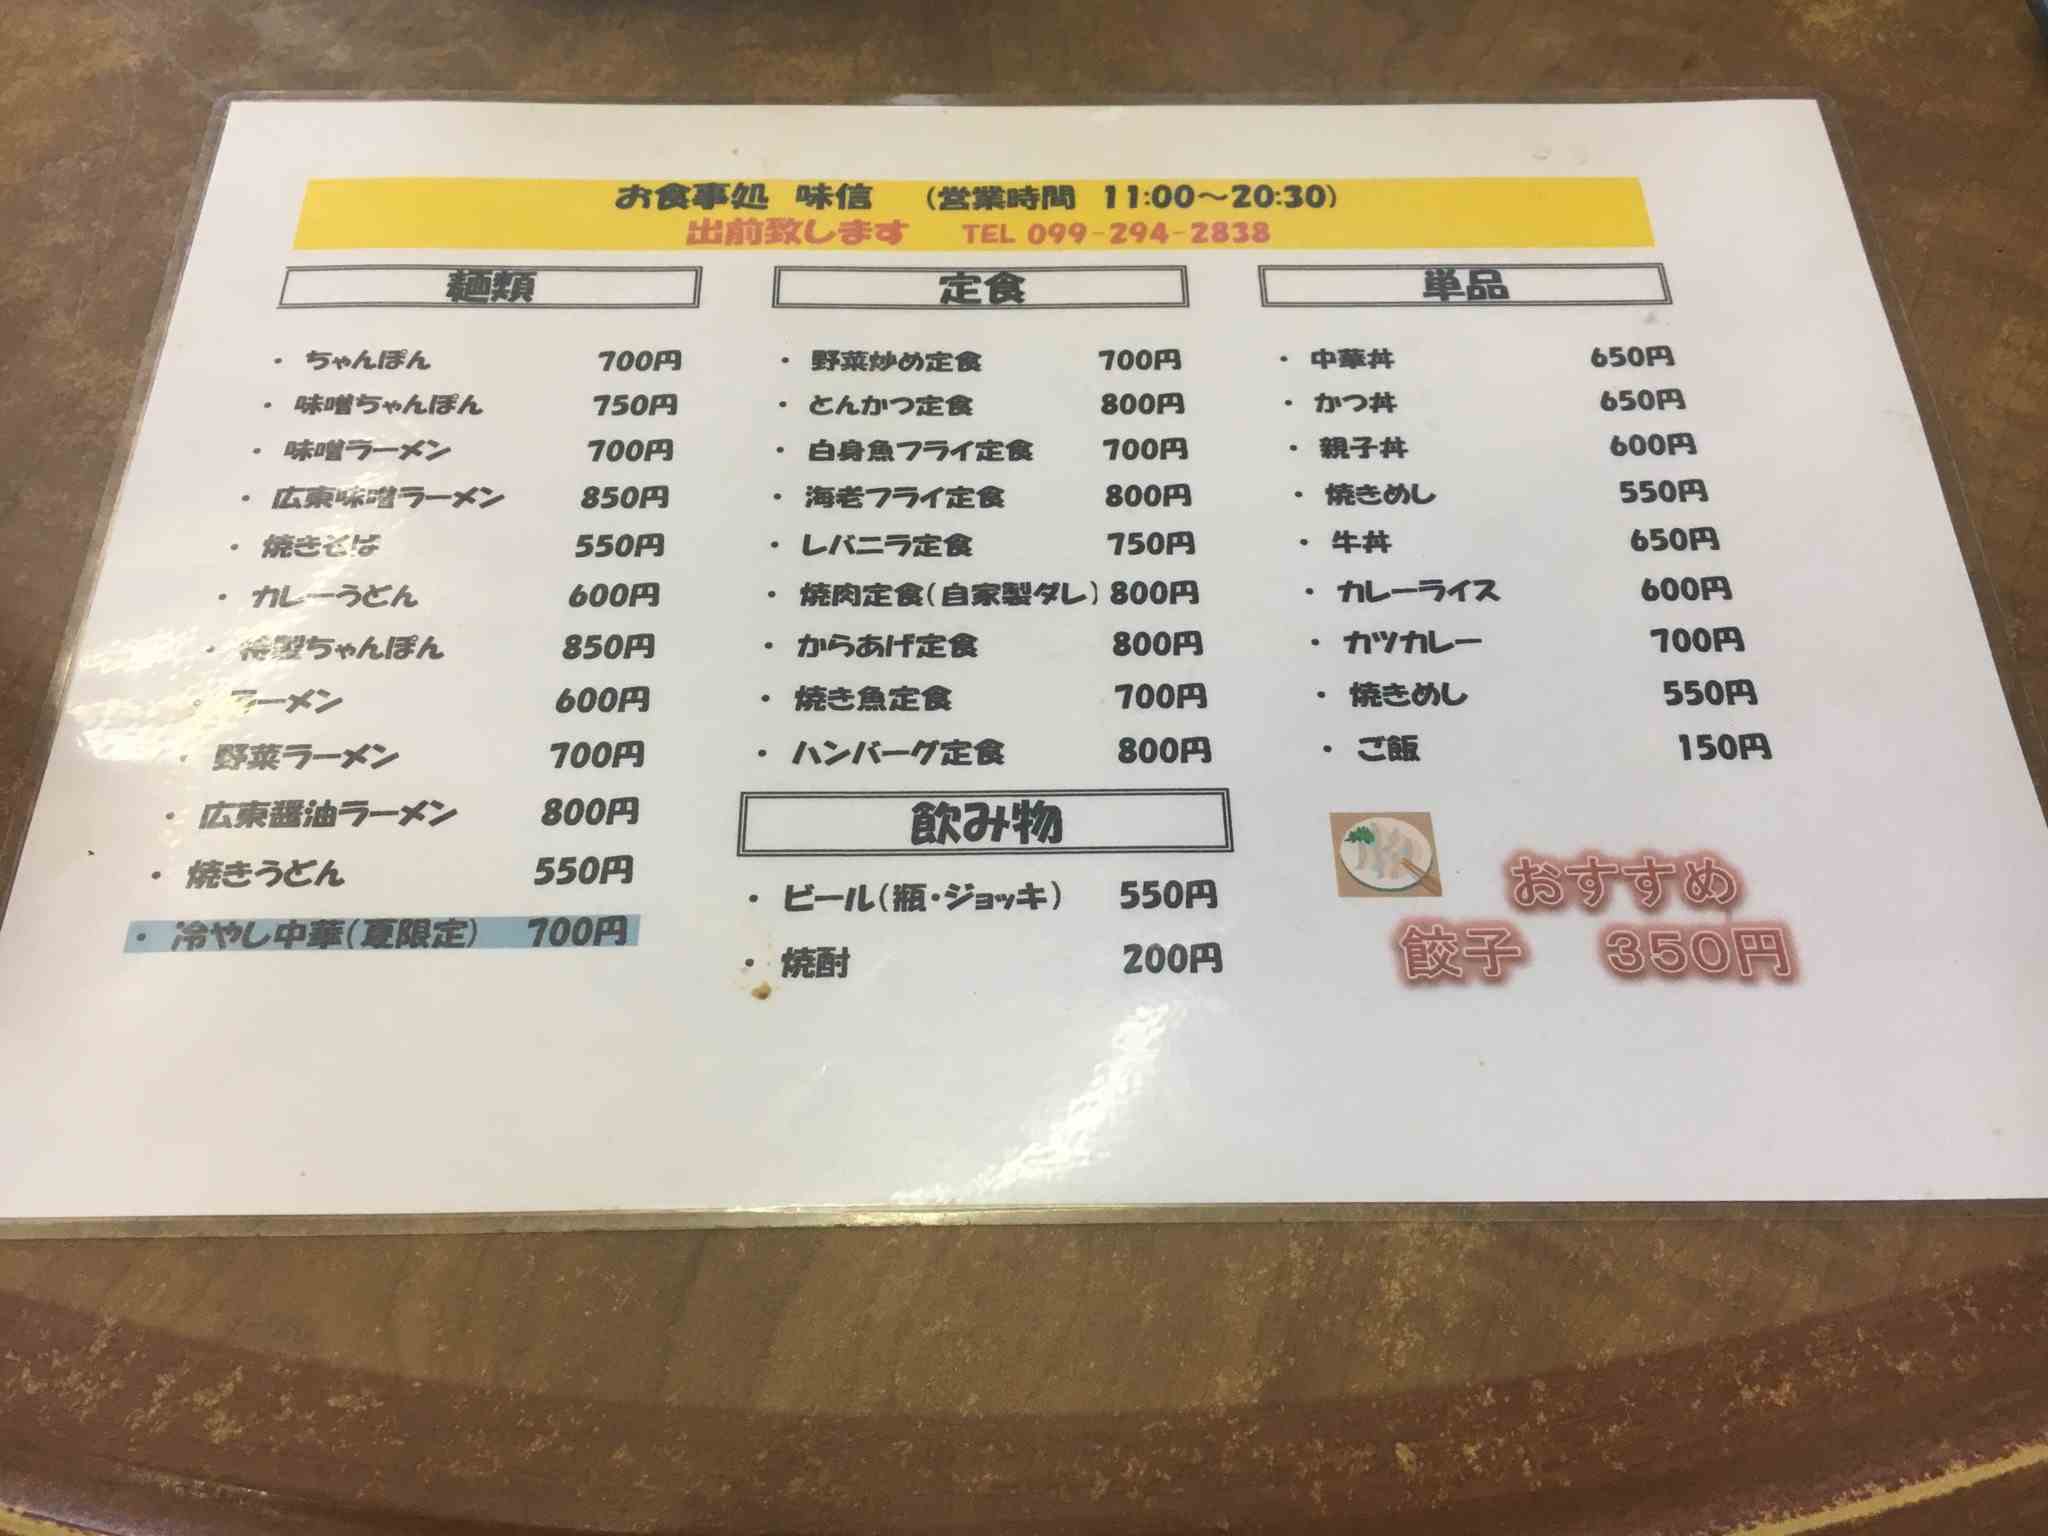 お食事処 味信 (営業時間 11:00〜20:30)
出前致します TEL 099-294-2838
麺類
・ちゃんぽん 700円
・味噌ちゃんぽん 750円
・味噌ラーメン 700円
・広東味噌ラーメン 850円
・焼きそば 550円
・カレーうどん 600円
・特製ちゃんぽん 850円
・ラーメン 600円
・野菜ラーメン 700円
・広東醤油ラーメン 800円
・焼きうどん 550円
・冷やし中華(夏限定) 700円
定食
・野菜炒め定食 700円
・とんかつ定食 800円
・白身魚フライ定食 700円
・海老フライ定食 800円
・レバニラ定食 750円
・焼肉定食(自家製ダレ) 800円
・からあげ定食 800円
・焼き魚定食 700円
・ハンバーグ定食 800円
飲み物
・ビール(瓶・ジョッキ) 550円
・焼酎 200円
単品
・中華丼 650円
・かつ丼 650円
・親子丼 600円
・焼きめし 550円
・牛丼 650円
・カレーライス 600円
・カツカレー 700円
・焼きめし 550円
・ご飯 150円
おすすめ
餃子 350円